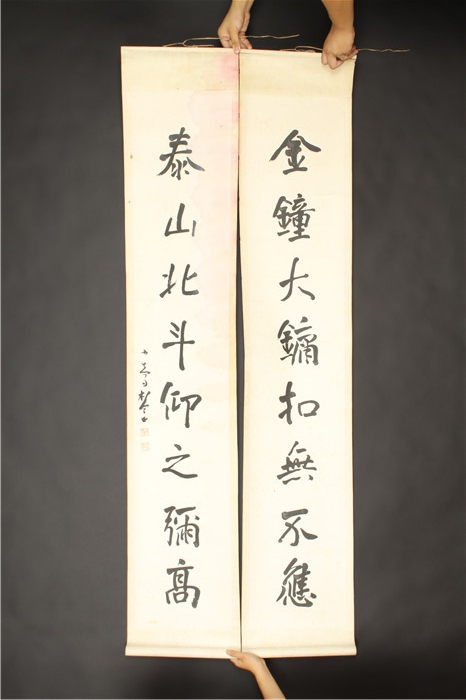 金鐘大鏞扣無不應
泰山北斗仰之彌高